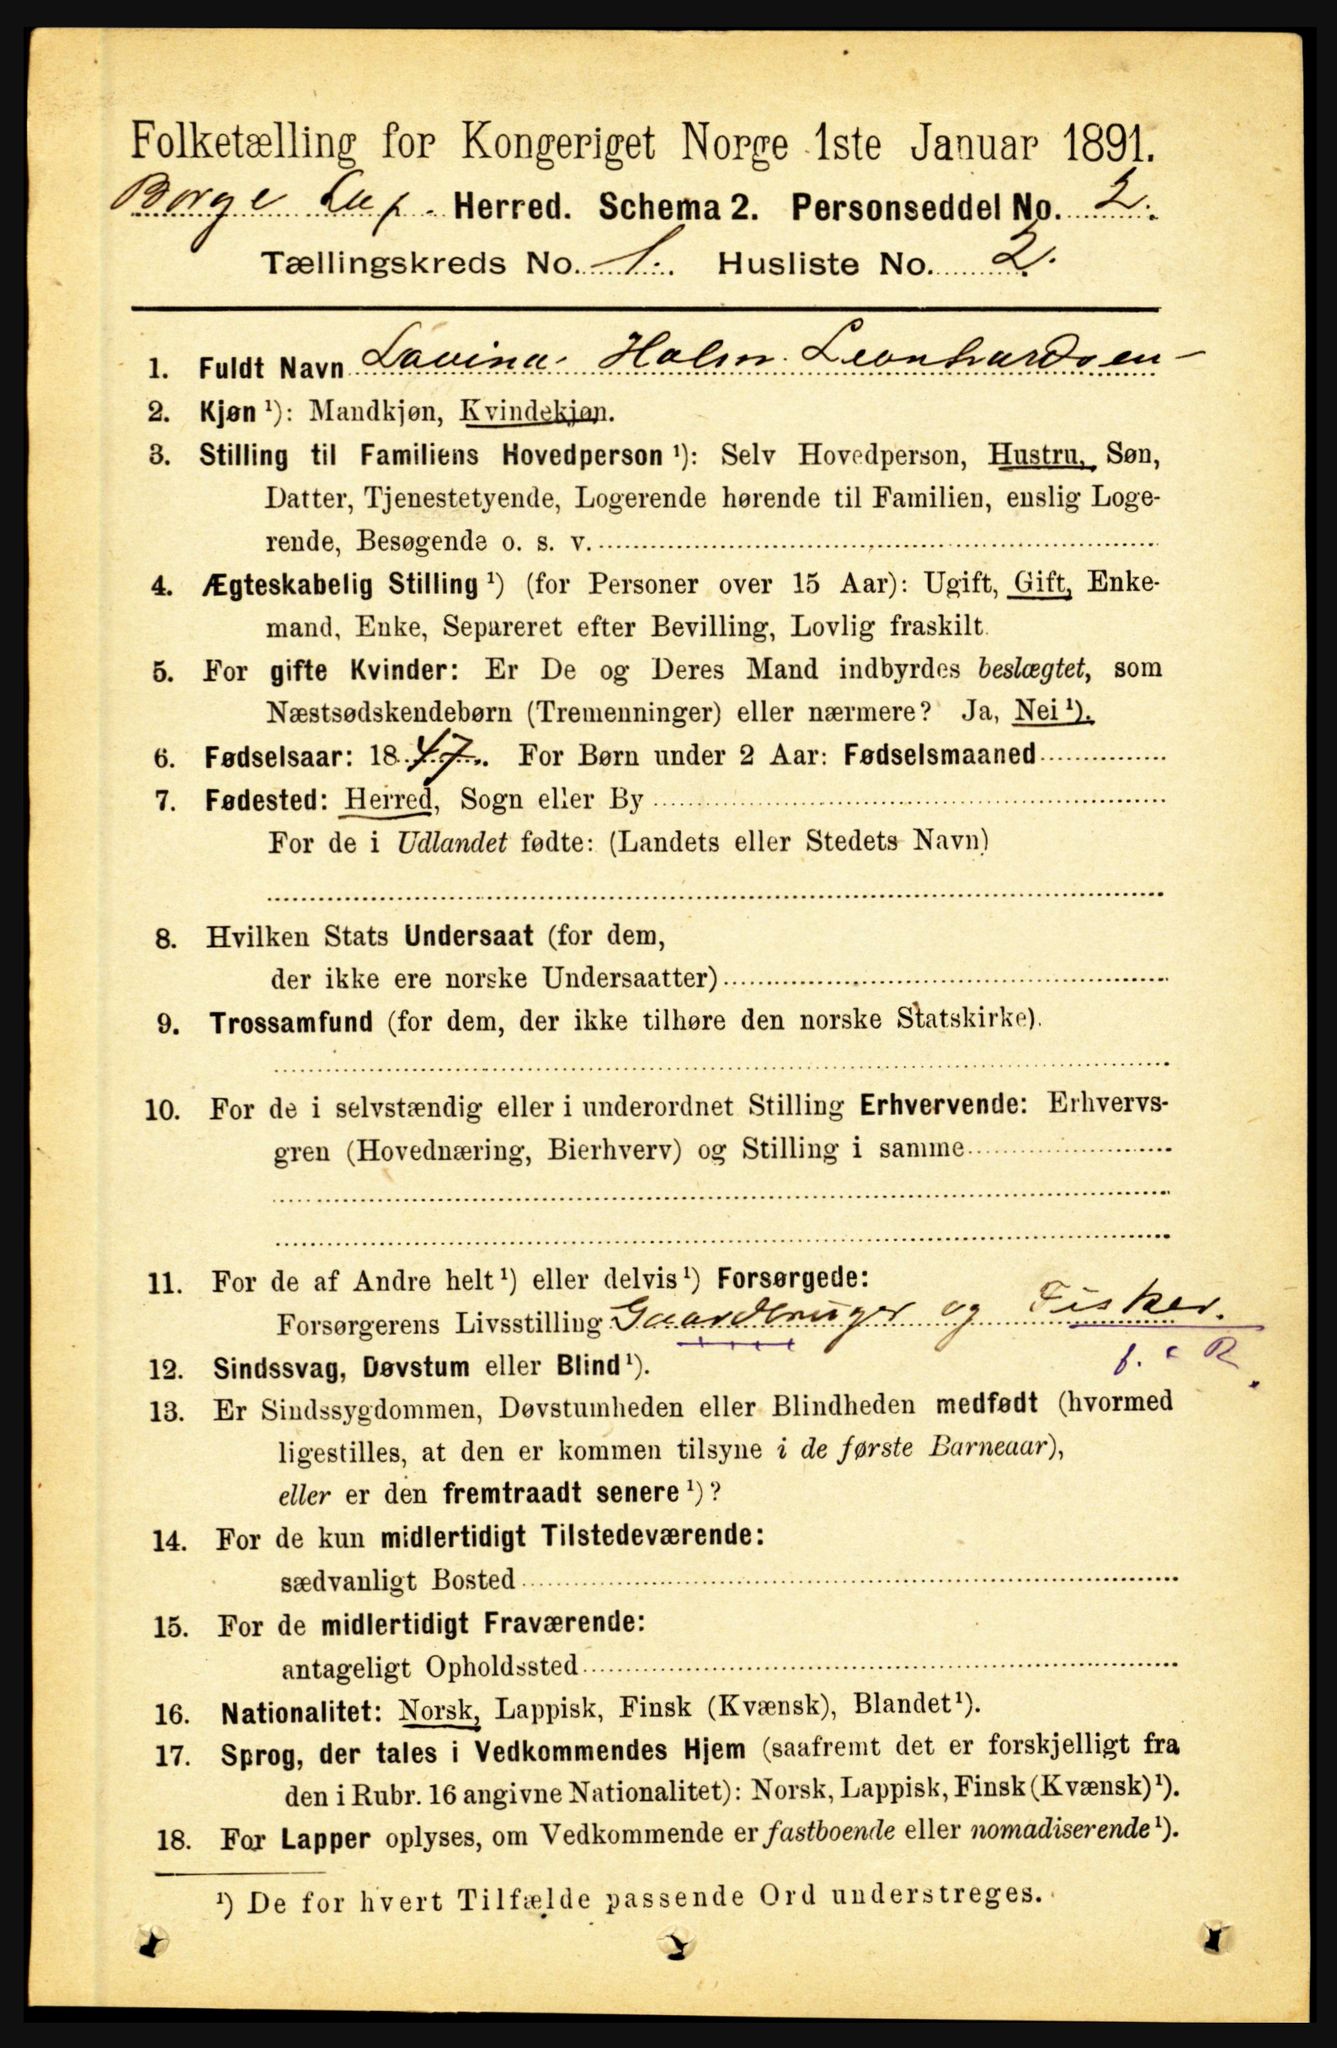 Folketælling for Kongeriget Norge 1ste Januar 1891.
Borge Herred. Schema 2. Personseddel No. 2.
Tællingskreds No. 1. Husliste No. 2.
1. Fuldt Navn Lovina Holm Leonhardsen
2. Kjøn ¹): Mandkjøn, Kvindekjøn.
3. Stilling til Familiens Hovedperson ¹): Selv Hovedperson, Hustru, Søn,
Datter, Tjenestetyende, Logerende hørende til Familien, enslig Loge-
rende, Besøgende o. s. v.
4. Ægteskabelig Stilling ¹) (for Personer over 15 Aar): Ugift, Gift, Enke-
mand, Enke, Separeret efter Bevilling, Lovlig fraskilt.
5. For gifte Kvinder: Er De og Deres Mand indbyrdes beslægtet, som
Næstsødskendebørn (Tremenninger) eller nærmere? Ja, Nei ¹).
6. Fødselsaar: 1847. For Børn under 2 Aar: Fødselsmaaned
7. Fødested: Herred, Sogn eller By
For de i Udlandet fødte: (Landets eller Stedets Navn)
8. Hvilken Stats Undersaat (for dem,
der ikke ere norske Undersaatter)
9. Trossamfund (for dem, der ikke tilhøre den norske Statskirke).
10. For de i selvstændig eller i underordnet Stilling Erhvervende: Erhvervs-
gren (Hovednæring, Bierhverv) og Stilling i samme
11. For de af Andre helt ¹) eller delvis ¹) Forsørgede:
Forsørgerens Livsstilling Gaardbruger og Fisker.
12. Sindssvag, Døvstum eller Blind ¹).
13. Er Sindssygdommen, Døvstumheden eller Blindheden medfødt (hvormed
ligestilles, at den er kommen tilsyne i de første Barneaar),
eller er den fremtraadt senere ¹)?
14. For de kun midlertidigt Tilstedeværende:
sædvanligt Bosted
15. For de midlertidigt Fraværende:
antageligt Opholdssted
16. Nationalitet: Norsk, Lappisk, Finsk (Kvænsk), Blandet ¹).
17. Sprog, der tales i Vedkommendes Hjem (saafremt det er forskjelligt fra
den i Rubr. 16 angivne Nationalitet): Norsk, Lappisk, Finsk (Kvænsk) ¹).
18. For Lapper oplyses, om Vedkommende er fastboende eller nomadiserende ¹).
¹) De for hvert Tilfælde passende Ord understreges.